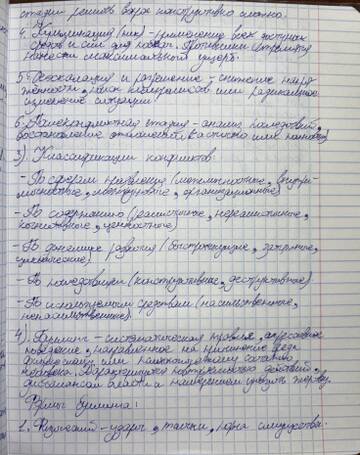 стадии решить вопрос конструктивно сложно.
4. Кульминация (пик) - применение всех доступных
средств и сил для победы. Противники стремятся
нанести максимальный ущерб.
5. Деэскалация и разрешение - снижение напря-
женности, поиск компромиссов или радикальное
изменение ситуации.
6. Послеконфликтная стадия - анализ последствий,
восстановление отношений (частично или полностью)
3) Классификация конфликтов:
- По сферам проявления (межличностные, внутри-
личностные, межгрупповые, организационные)
- По содержанию (реалистичные, нереалистичные,
когнитивные, ценностные)
- По динамике развития (быстротекущие, затяжные,
циклические).
- По последствиям (конструктивные, деструктивные).
- По используемым средствам (насильственные,
ненасильственные).
4). Буллинг - систематическая травля, агрессивное
поведение, направленное на причинение вреда
физическому или психологическому состоянию
человека. Характеризуется повторяемостью действий,
дисбалансом власти и намерением унизить жертву.
Формы буллинга:
1. Физический - удары, толчки, порча имущества.